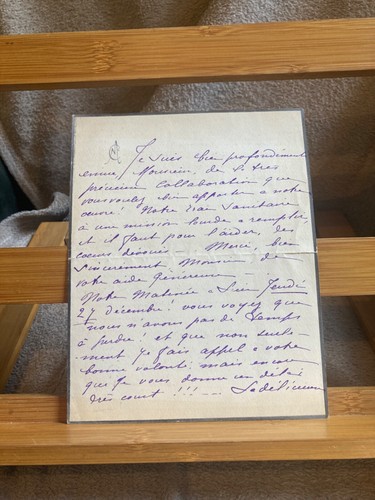 Je suis bien profondément
émue, Monsieur, de la très
précieuse collaboration que
vous voulez bien apporter à notre
œuvre! Notre train Sanitaire
à une mission lourde à remplir
et il faut pour l'aider, des
cœurs dévoués. Merci, bien
Sincèrement Monsieur de
votre aide généreuse —
Notre Matinée a lieu Jeudi
27 Décembre! vous voyez que
nous n'avons pas de temps
à perdre! et que non seule-
ment je fais appel à votre
bonne volonté mais encore
que je vous donne un délai
très court!!! —